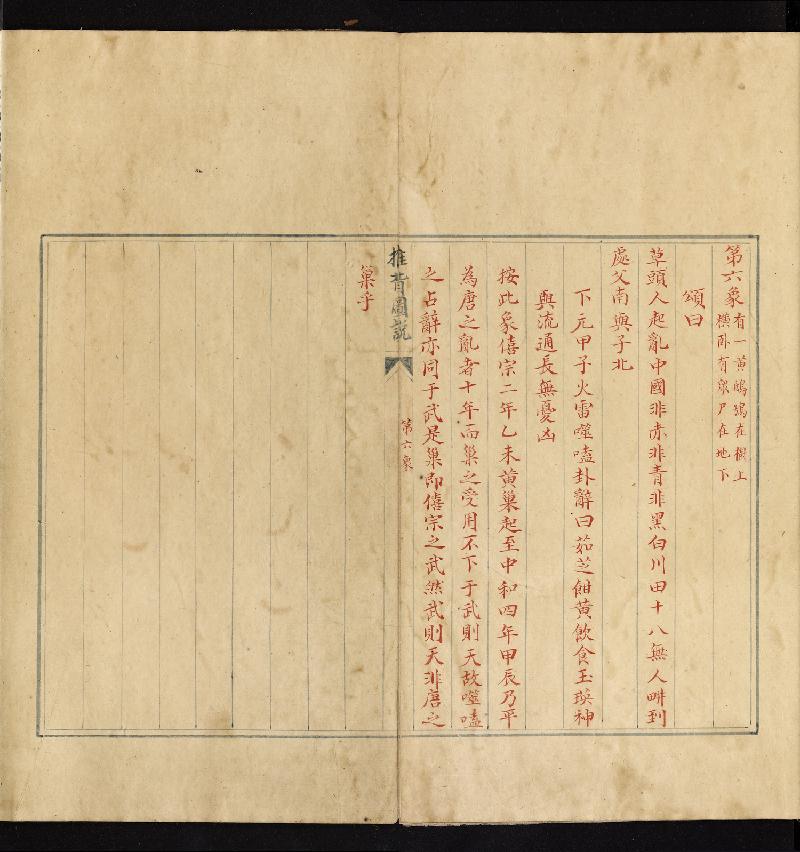 第六象 有一黃鸕鶿在樹上
橫卧有眾尸在地下
頌曰
草頭人起亂中國非赤非青非黑白川田十八無人畊到
處父南與子北
下元甲子火雷噬嗑卦辭曰茹芝餌黃飲食玉瑛神
與流通長無憂凶
按此象僖宗二年乙未黃巢起至中和四年甲辰乃平
為唐之亂者十年而巢之受用不下于武則天故噬嗑
之占辭亦同于武是巢即僖宗之武然武則天非唐之
推背圖說
第六象
巢乎